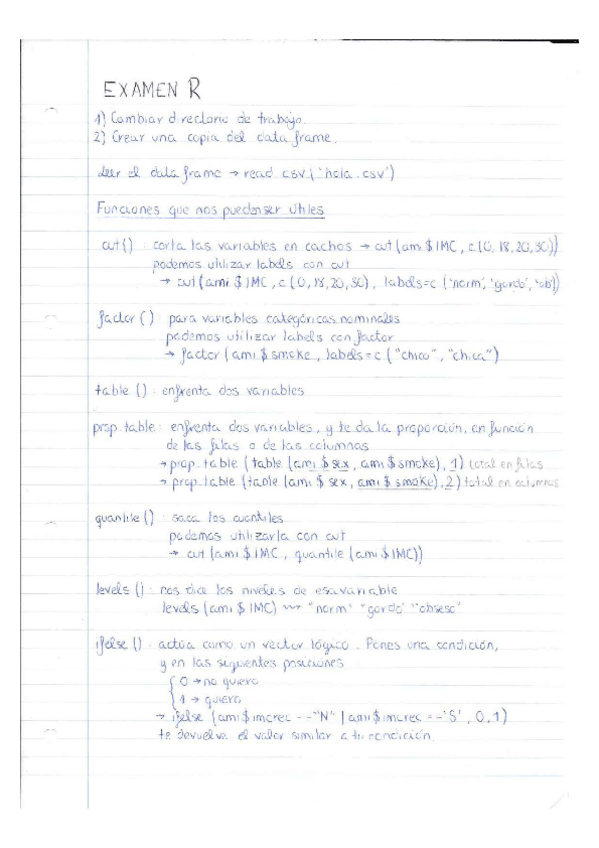 EXAMEN R
1) Cambiar directorio de trabajo.
2) Crear una copia del data frame.
Leer el data frame → read.csv('hola.csv')
Funciones que nos pueden ser útiles
cut() : corta las variables en cachos → cut(ami$IMC, c(0,18,20,30))
podemos utilizar labels con cut
→ cut(ami$IMC, c(0,18,20,30), labels=c('norm','gordo','ob'))
factor() : para variables categóricas nominales
podemos utilizar labels con factor
→ factor(ami$smoke, labels=c("chico","chica")
table() : enfrenta dos variables
prop.table : enfrenta dos variables, y te da la proporción, en función
de las filas o de las columnas
→ prop.table(table(ami$sex, ami$smoke),1) total en filas
→ prop.table(table(ami$sex, ami$smoke),2) total en columnas
quantile() : saca los cuantiles
podemos utilizarla con cut
→ cut(ami$IMC, quantile(ami$IMC))
levels() : nos dice los niveles de esa variable
levels(ami$IMC) "norm" "gordo" "obseso"
ifelse() : actúa como un vector lógico. Pones una condición,
y en las siguientes posiciones
0 → no quiero
1 → quiero
→ ifelse(ami$imcrec=="N" | ami$imcrec=='S', 0,1)
te devuelve el valor similar a tu condición.